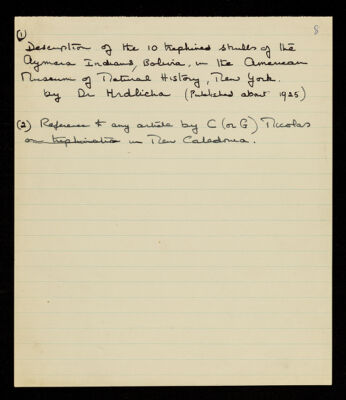 8
(1)
Description of the 10 trephined skulls of the
Aymara Indians, Bolivia, in the American
Museum of Natural History, New York.
by Dr Hrdlicka (Published about 1925)
(2) Reference to any article by C (or G) Nicolas
on trephination in New Caledonia.